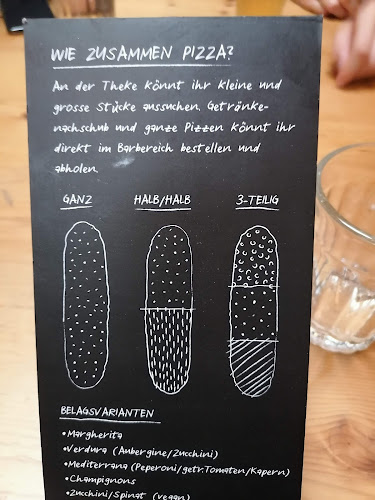 WIE ZUSAMMEN PIZZA?
An der Theke könnt ihr kleine und
grosse Stücke aussuchen. Getränke-
nachschub und ganze Pizzen könnt ihr
direkt im Barbereich bestellen und
abholen.
GANZ HALB/HALB 3-TEILIG
BELAGSVARIANTEN
•Margherita
•Verdura (Aubergine/Zucchini)
•Mediterrana (Peperoni/getr.Tomaten/Kapern)
•Champignons
•Zucchini/Spinat (vegan)